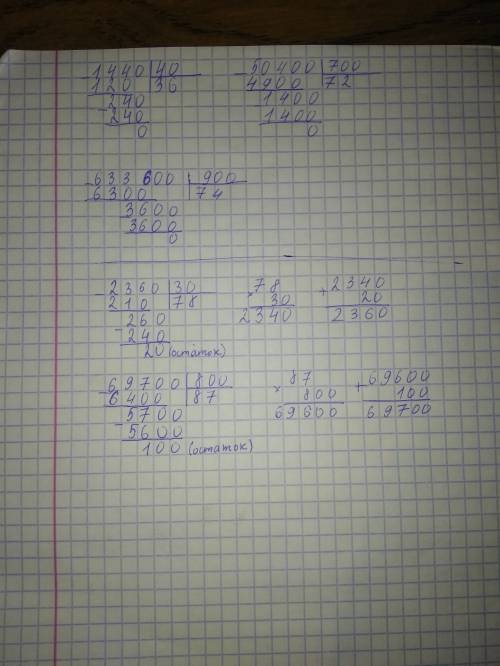 1440 40
120 36
-240
240
0
50400 700
4900 72
1400
1400
0
633600 900
6300 74
3600
3600
0
-2360 30
210 78
-260
240
20 (остаток)
×78
30
2340
+2340
20
2360
-69700 800
6400 87
-5700
5600
100 (остаток)
×87
800
69600
+69600
100
69700